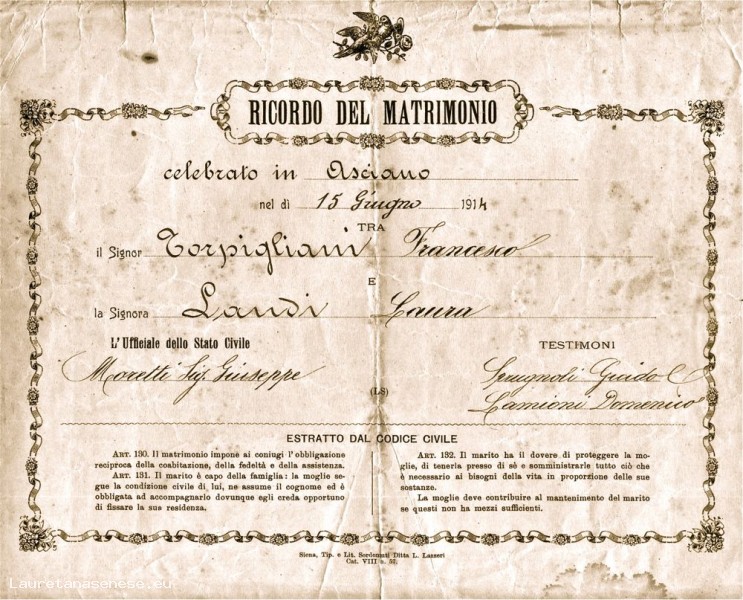 RICORDO DEL MATRIMONIO
celebrato in Asciano
nel dì 15 Giugno 1914
TRA
il Signor Torpigliani Francesco
E
la Signora Landi Laura
L'Ufficiale dello Stato Civile
TESTIMONI
Moretti Sig. Giuseppe
Spugnoli Guido
(LS)
Lamioni Domenico
ESTRATTO DAL CODICE CIVILE
ART. 130. Il matrimonio impone ai coniugi l'obbligazione
reciproca della coabitazione, della fedeltà e della assistenza.
ART. 131. Il marito è capo della famiglia: la moglie se-
gue la condizione civile di lui, ne assume il cognome ed è
obbligata ad accompagnarlo dovunque egli creda opportuno
di fissare la sua residenza.
ART. 132. Il marito ha il dovere di proteggere la mo-
glie, di tenerla presso di sè e somministrarle tutto ciò che
è necessario ai bisogni della vita in proporzione delle sue
sostanze.
La moglie deve contribuire al mantenimento del marito
se questi non ha mezzi sufficienti.
Siena, Tip. e Lit. Sordomuti Ditta L. Lazzeri
Cat. VIII n. 52.
Lauretanasenese.eu